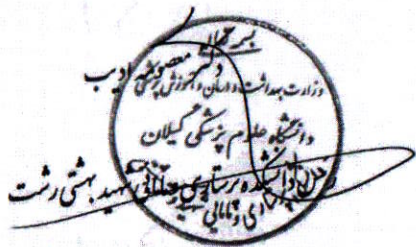 بسمه تعالی
دکتر معصومه ادیب
وزارت بهداشت و درمان و آموزش پزشکی
دانشگاه علوم پزشکی گیلان
دانشکده پرستاری مامائی شهید بهشتی رشت
پرستاری و مامائی